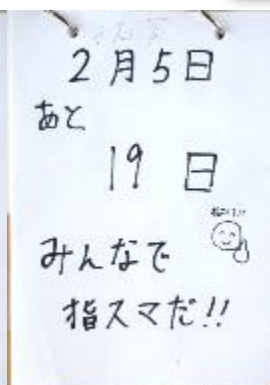 2月5日
あと
19日
みんなで
指スマだ!!